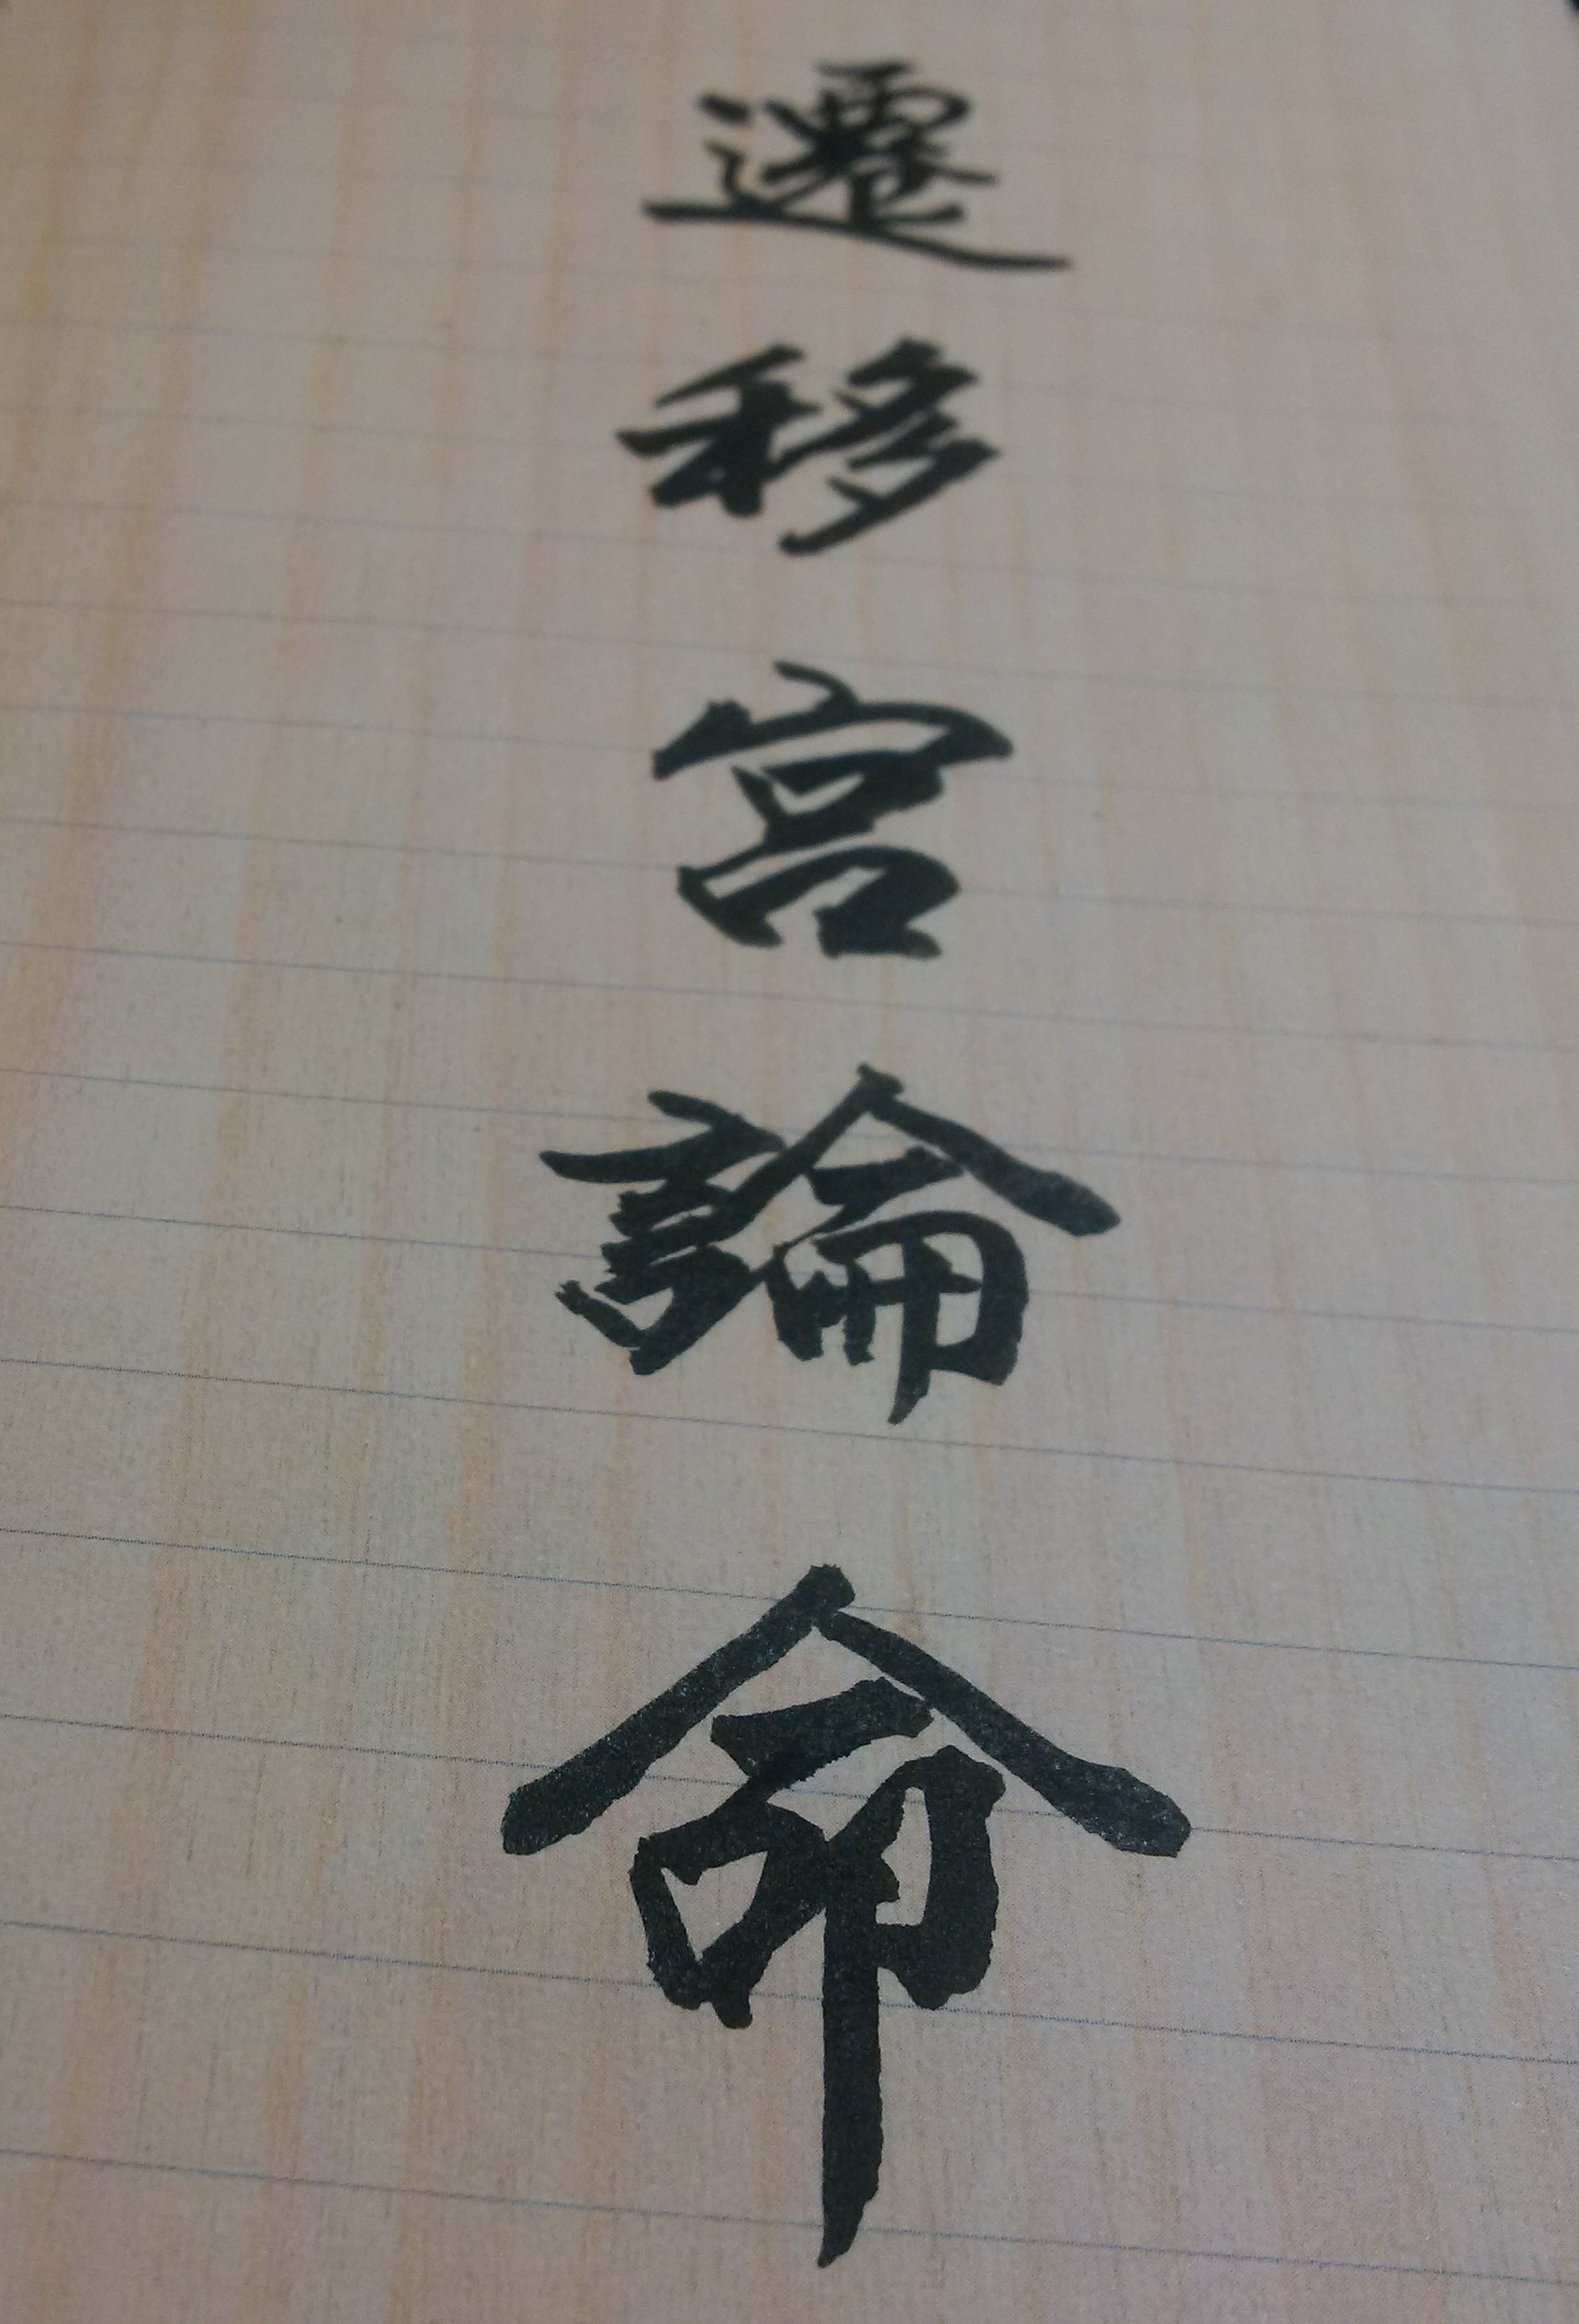 遷移宮論命